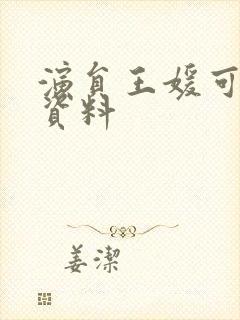 演員王媛可
資料
姜潔